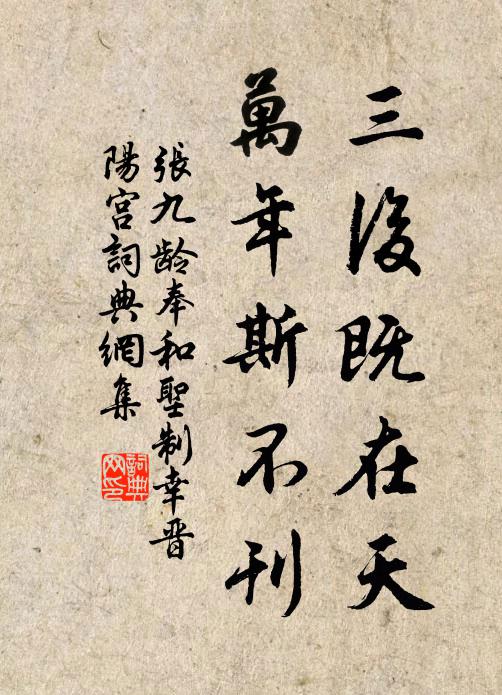 三後既在天
萬年斯不刊
張九齡奉和聖制幸晉
陽宮詞典網集
詞典
网印